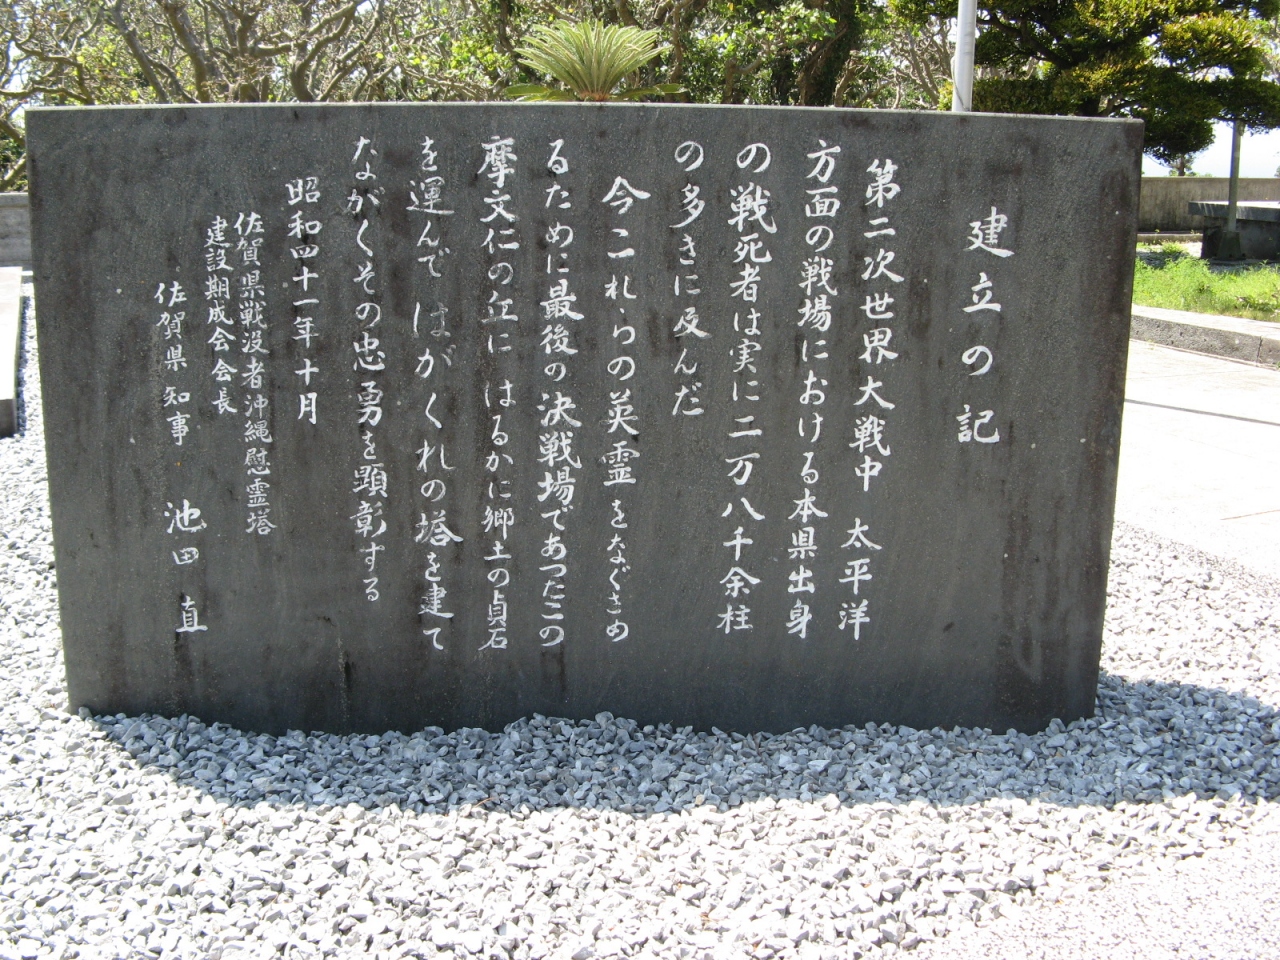 建立の記
第二次世界大戦中 太平洋
方面の戦場における本県出身
の戦死者は実に二万八千余柱
の多きに及んだ
今これらの英霊をなぐさめ
るために最後の決戦場であつたこの
摩文仁の丘に はるかに郷土の貞石
を運んで はがくれの塔を建て
ながくその忠勇を顕彰する
昭和四十一年十月
佐賀県戦没者沖縄慰霊塔
建設期成会会長
佐賀県知事 池田直